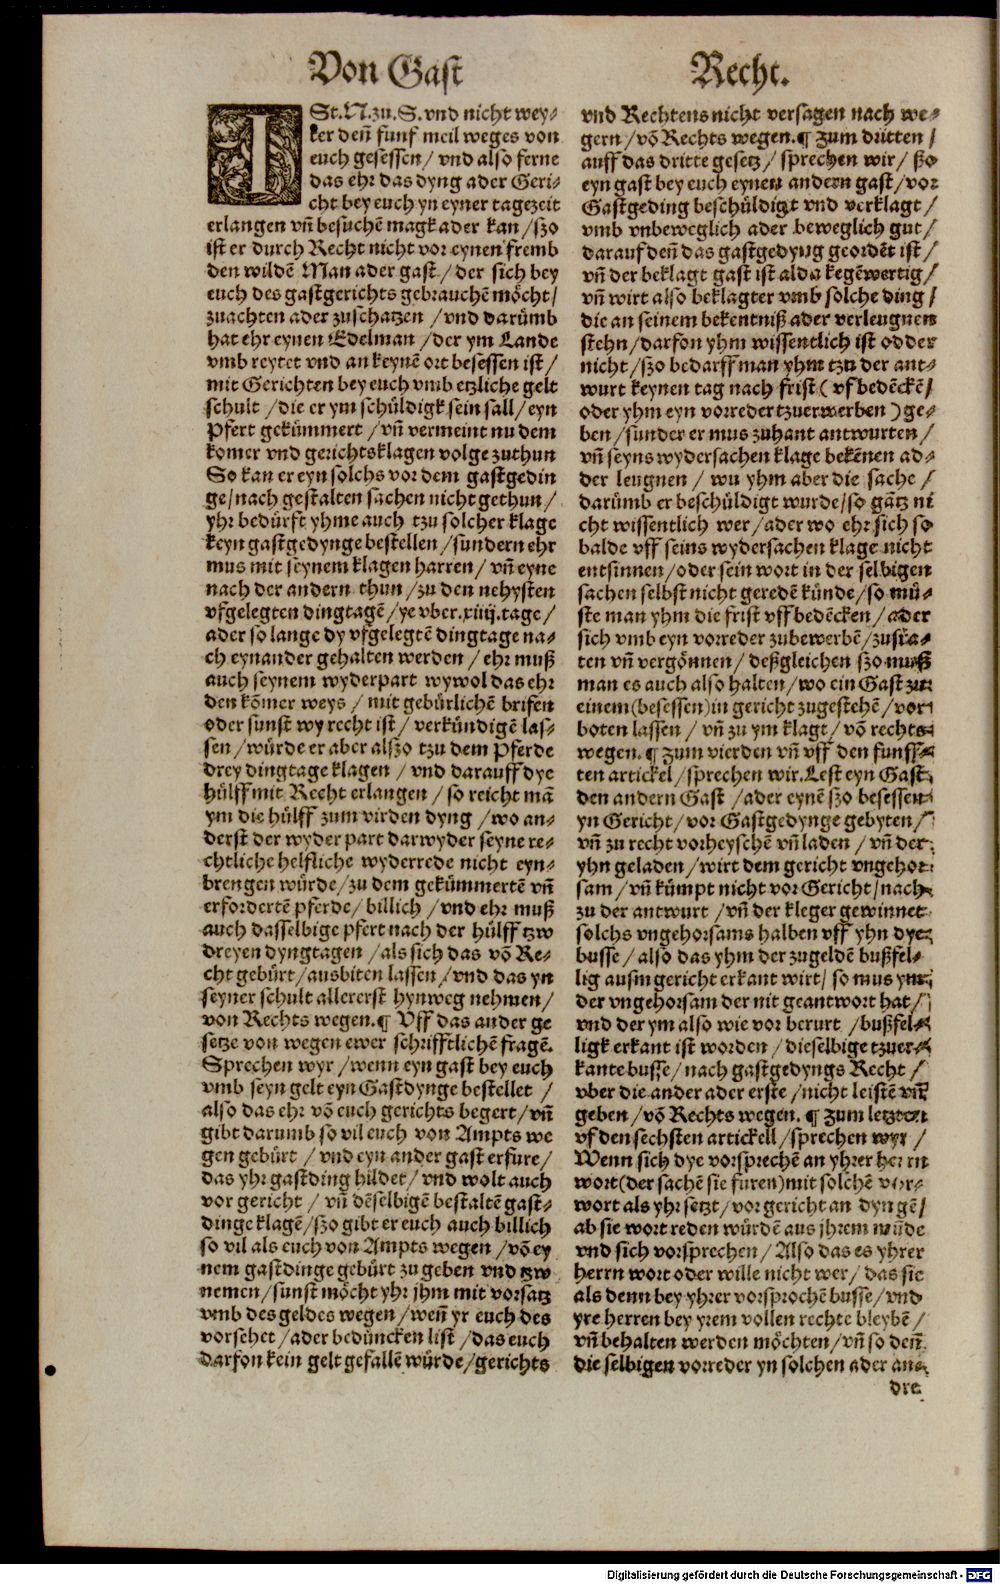 Von Gast Recht.
ISt. N. zu. S. vnd nicht wey⸗
ker deñ funf meil weges von
euch gesessen / vnd also ferne
das ehr das dyng ader Geri⸗
cht bey euch yn eyner tagezeit
erlangen vñ besuchẽ magk ader kan / szo
ist er durch Recht nicht vor eynen fremb
den wildẽ Man ader gast / der sich bey
euch des gastgerichts gebrauchẽ möcht /
zuachten ader zuschatzen / vnd darümb
hat ehr eynen Edelman / der ym Lande
vmb reytet vnd an keynẽ ort besessen ist /
mit Gerichten bey euch vmb etzliche gelt
schult / die er ym schüldigk sein sall / eyn
Pfert gekümmert / vñ vermeint nu dem
komer vnd gerichtsklagen volge zuthun
So kan er eyn solchs vor dem gastgedin
ge / nach gestalten sachen nicht gethun /
yhr bedürft yhme auch tzu solcher klage
keyn gastgedynge bestellen / sundern ehr
mus mit seynem klagen harren / vñ eyne
nach der andern thun / zu den nehysten
vfgelegten dingtagẽ / ye vber. xiiij. tage /
ader so lange dy vfgelegtẽ dingtage na⸗
ch eynander gehalten werden / ehr muß
auch seynem wyderpart wywol das ehr
den kõmer weys / mit gebürlichẽ brifen
oder sunst wy recht ist / verkündigẽ las⸗
sen / würde er aber alszo tzu dem Pferde
drey dingtage klagen / vnd darauff dye
hülff mit Recht erlangen / so reicht mã
ym die hülff zum virden dyng / wo an⸗
derst der wyder part darwyder seyne re⸗
chtliche helfliche wyderrede nicht eyn⸗
brengen würde / zu dem gekümmertẽ vñ
erfordertẽ pferde / billich / vnd ehr muß
auch dasselbige pfert nach der hülff tzw
dreyen dyngtagen / als sich das võ Re⸗
cht gebürt / ausbiten lassen / vnd das yn
seyner schult allererst hynweg nehmen /
von Rechts wegen. ¶ Vff das ander ge
setze von wegen ewer schrifftlichẽ fragẽ.
Sprechen wyr / wenn eyn gast bey euch
vmb seyn gelt eyn Gastdynge bestellet /
also das ehr võ euch gerichts begert / vñ
gibt darumb so vil euch von Ampts we
gen gebürt / vnd eyn ander gast erfure /
das yhr gastding hildet / vnd wolt auch
vor gericht / vñ dẽselbigẽ bestaltẽ gast⸗
dinge klagẽ / szo gibt er euch auch billich
so vil als euch von Ampts wegen / võ ey
nem gastdinge gebürt zu geben vnd tzw
nemen / sunst möcht yhr jhm mit vorsatz
vmb des geldes wegen / weñ yr euch des
vorsehet / ader bedüncken list / das euch
darfon kein gelt gefallẽ würde / gerichts
vnd Rechtens nicht versagen nach we⸗
gern / võ Rechts wegen. ¶ Zum dritten /
auff das dritte gesetz / sprechen wir / ßo
eyn gast bey euch eynen andern gast / vor
Gastgeding beschüldigt vnd verklagt /
vmb vnbeweglich ader beweglich gut /
darauf deñ das gastgedyng geordẽt ist /
vñ der beklagt gast ist alda kegẽwertig /
vñ wirt also beklagter vmb solche ding /
die an seinem bekentniß ader verleugnen
stehn / darfon yhm wissentlich ist odder
nicht / szo bedarff man yhm tzu der ant⸗
wurt keynen tag nach frist ( vf bedẽckẽ /
oder yhm eyn vorreder tzuerwerben ) ge⸗
ben / sunder er mus zuhant antwurten /
vñ seyns wydersachen klage bekẽnen ad⸗
der leugnen / wu yhm aber die sache /
darümb er beschüldigt wurde / so gãtz ni
cht wissentlich wer / ader wo ehr sich so
balde vff seins wydersachen klage nicht
entsinnen / oder sein wort in der selbigen
sachen selbst nicht geredẽ künde / so mü⸗
ste man yhm die frist vff bedẽcken / ader
sich vmb eyn vorreder zubewerbẽ / zusta⸗
ten vñ vergönnen / deßgleichen szo muß
man es auch also halten / wo ein Gast zu
einem (besessen) in gericht zugestehẽ / vor
boten lassen / vñ zu ym klagt / võ rechts⸗
wegen. ¶ Zum vierden vñ vff den funff⸗
ten artickel / sprechen wir. Lest eyn Gast
den andern Gast / ader eynẽ szo besessen
yn Gericht / vor Gastgedynge gebyten /
vñ zu recht vorheyschẽ vñ laden / vñ der
yhn geladen / wirt dem gericht vngehor
sam / vñ kümpt nicht vor Gericht / nach
zu der antwurt / vñ der kleger gewinnet
solchs vngehorsams halben vff yhn dye
busse / also das yhm der zugeldẽ bußfel⸗
lig ausm gericht erkant wirt / so mus ym
der vngehorsam der nit geantwort hat /
vnd der ym also wie vor berurt / bußfel⸗
ligk erkant ist worden / dieselbige tzuer⸗
kante busse / nach gastgedyngs Recht /
vber die ander ader erste / nicht leistẽ vñ
geben / võ Rechts wegen. ¶ Zum letzten
vf den sechsten artickell / sprechen wyr /
Wenn sich dye vorsprechẽ an yhrer herrn
wort (der sachẽ sie furen) mit solchẽ vor⸗
wort als yhr setzt / vor gericht an dyngẽ /
ab sie wort reden würdẽ aus jhrem mũde
vnd sich vorsprechen / Also das es yhrer
herrn wort oder wille nicht wer / das sie
als denn bey yhrer vorsprochẽ busse / vnd
yre herren bey yrem vollen rechte bleybẽ /
vñ behalten werden möchten / vñ so deñ
die selbigen vorreder yn solchen ader an⸗
dre
Digitalisierung gefördert durch die Deutsche Forschungsgemeinschaft - DFG